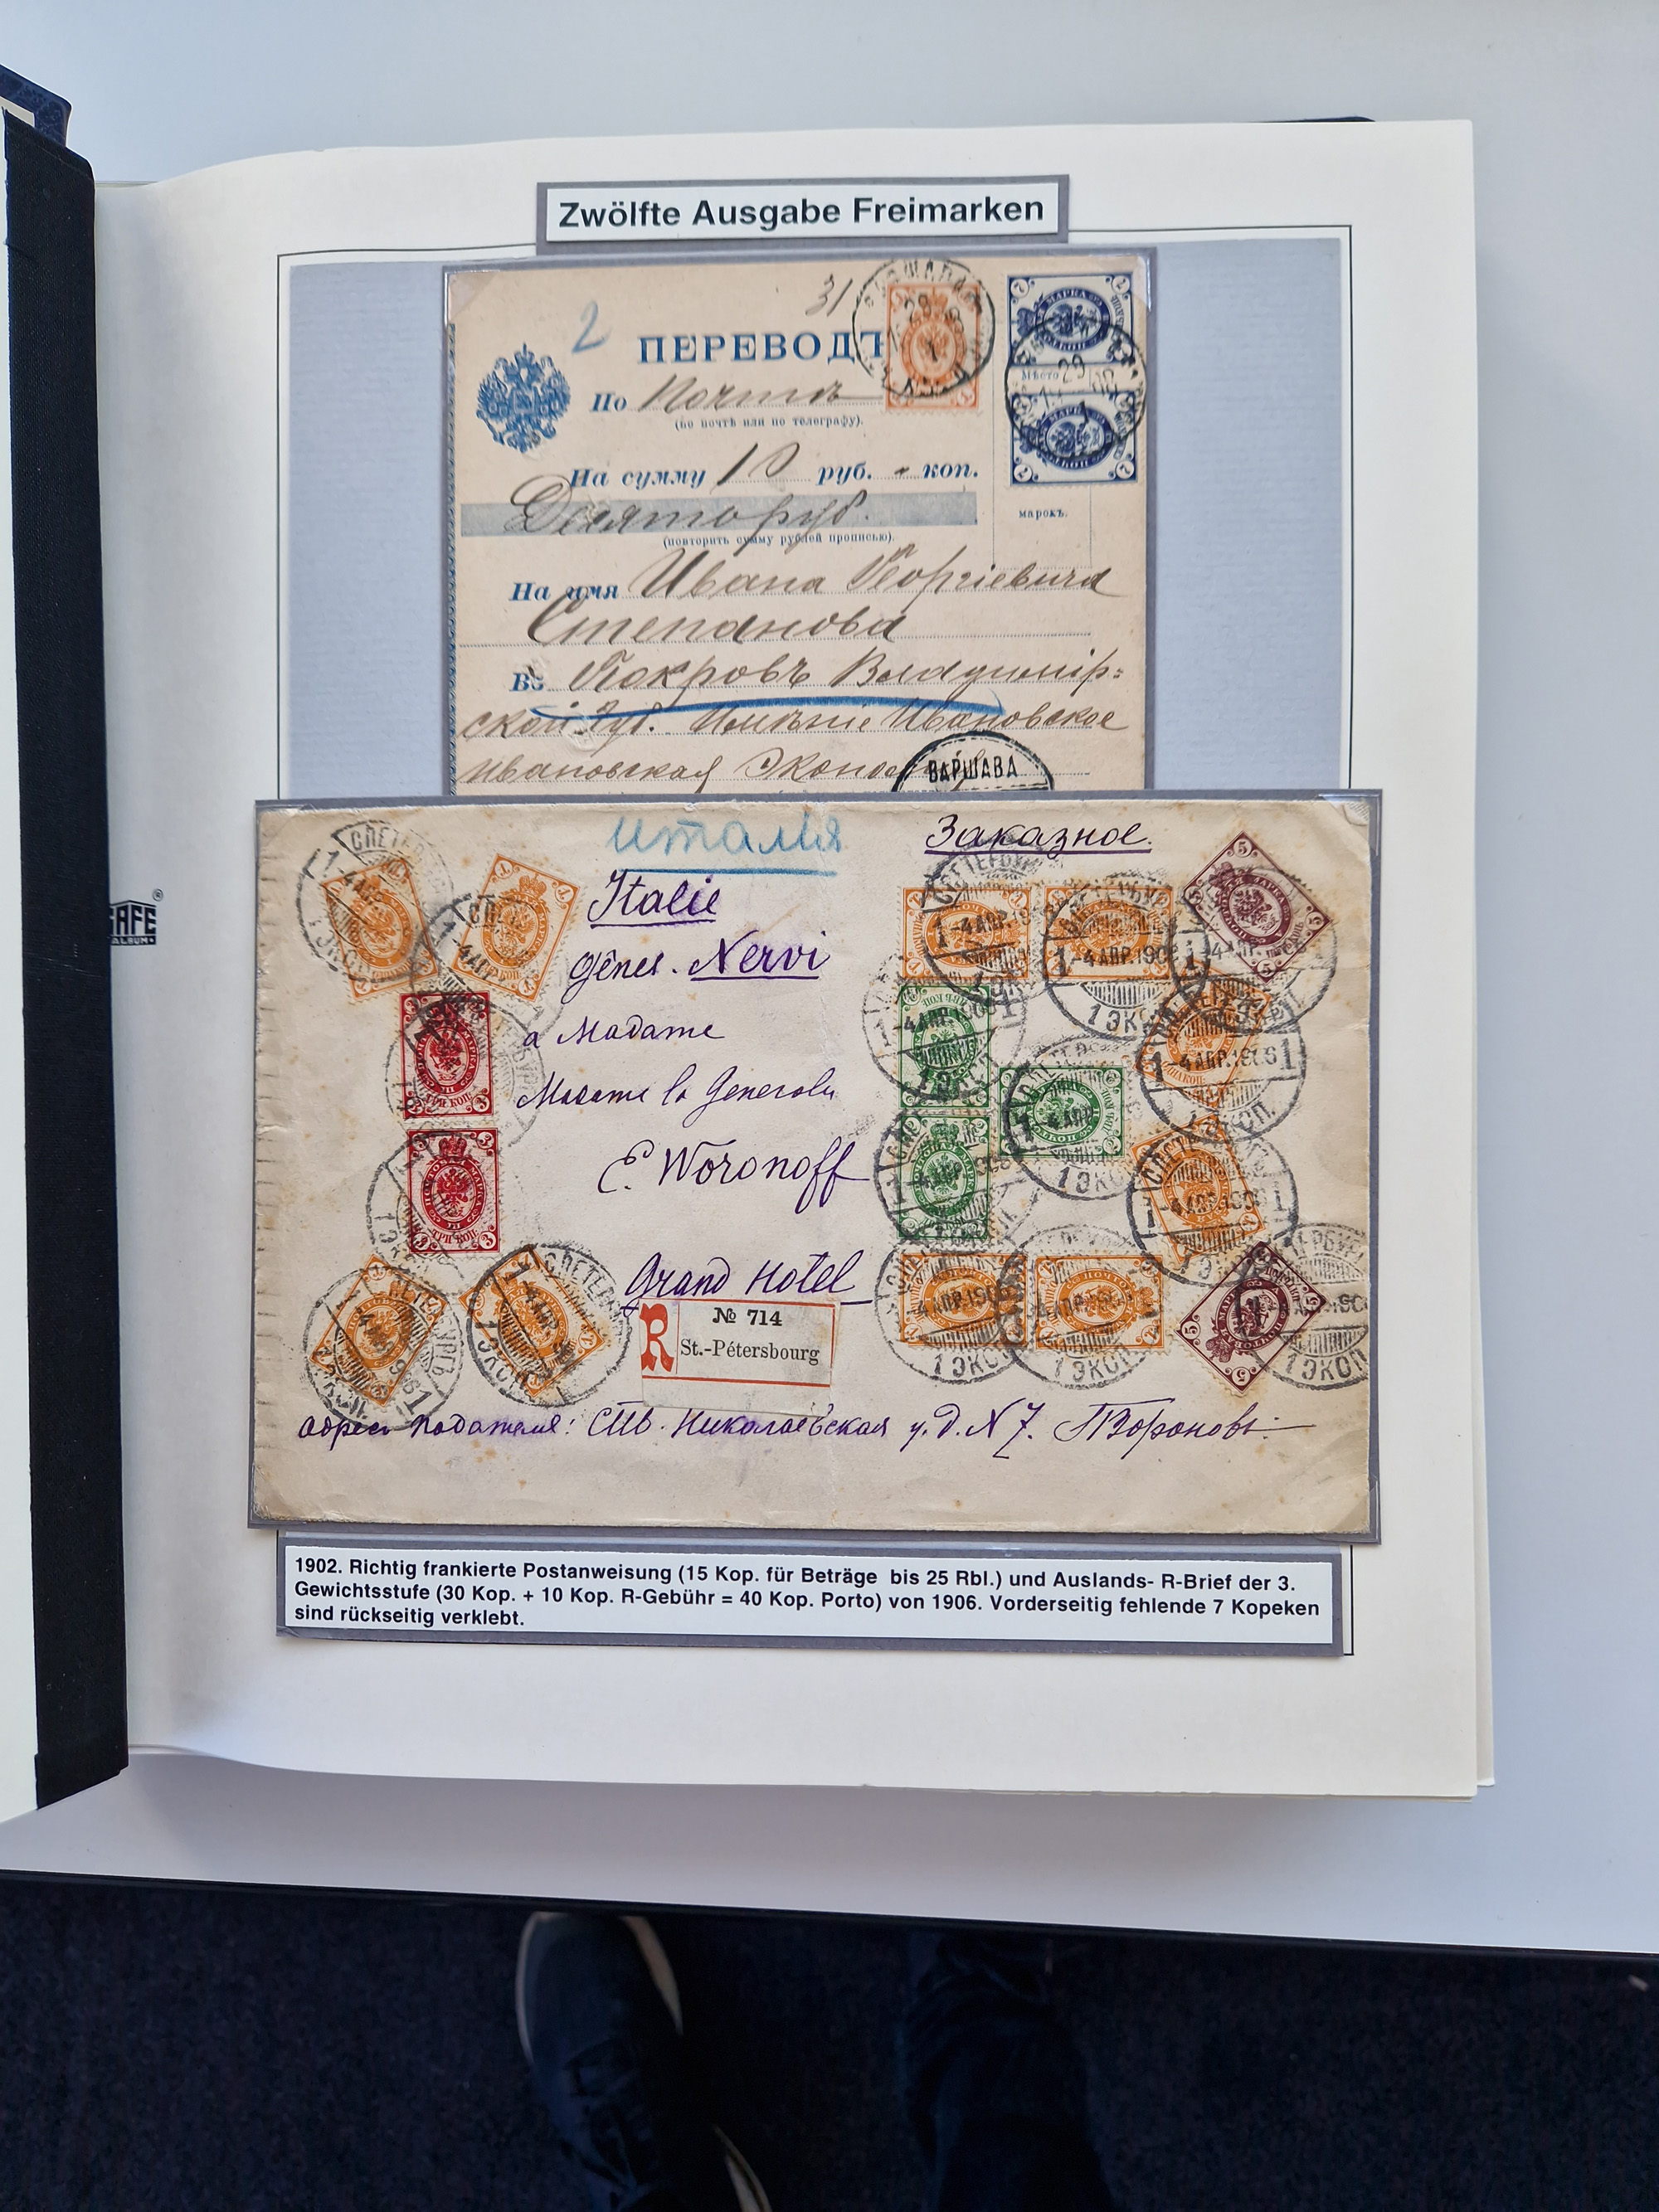 Zwölfte Ausgabe Freimarken
31
2
ПЕРЕВОДЪ
По Почтѣ
(по почтѣ или по телеграфу).
На сумму 10 руб. - коп.
Десять руб.
(повторить сумму рублей прописью).
Мѣсто
марокъ.
На имя Ивана Георгіевича
Степанова
Въ Покровъ Владимір-
ской губ. Имѣніе Ивановское
Ивановская
ВАРШАВА
SAFE
ALBUM
Италія
Заказное.
Italie
Gênes. Nervi
a Madame
Madame la Generale
E. Woronoff
Grand Hotel
R
№ 714
St.-Pétersbourg
адресъ подателя: СПБ. Николаевская у. д. N 7. Воронов
С.ПЕТЕРБУРГЪ
-4 АПР.1906
1 ЭКСП.
1902. Richtig frankierte Postanweisung (15 Kop. für Beträge bis 25 Rbl.) und Auslands- R-Brief der 3.
Gewichtsstufe (30 Kop. + 10 Kop. R-Gebühr = 40 Kop. Porto) von 1906. Vorderseitig fehlende 7 Kopeken
sind rückseitig verklebt.